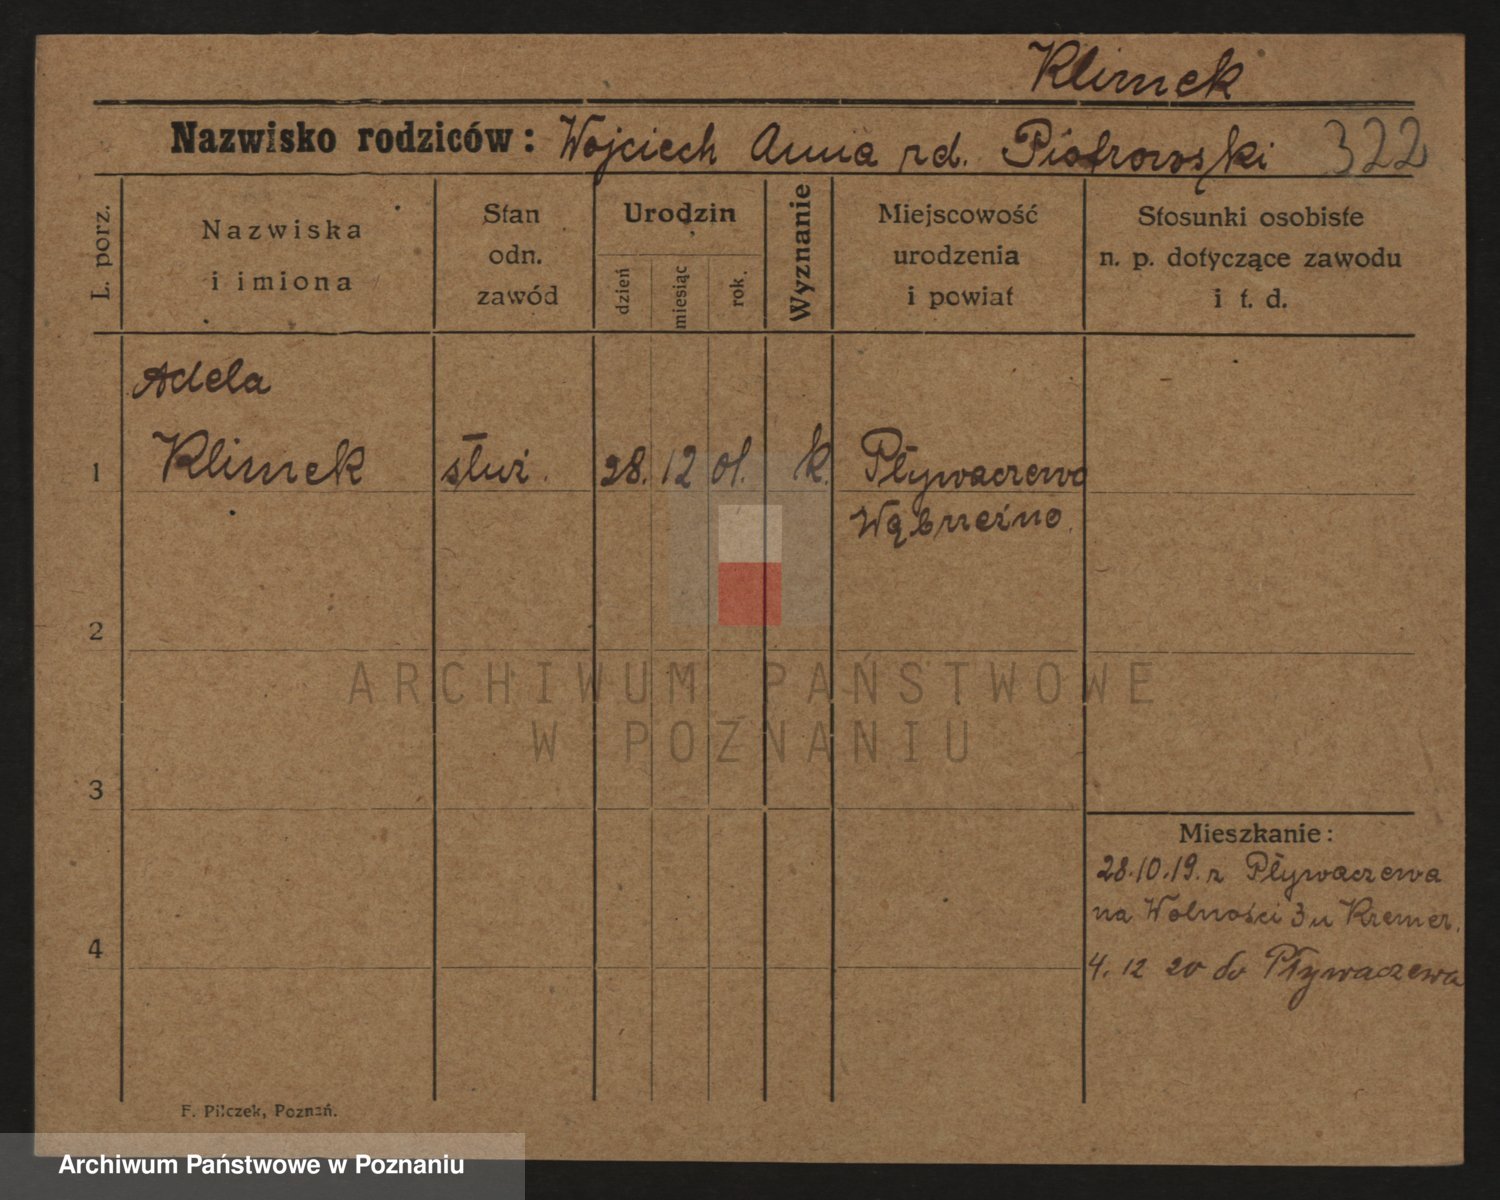 Klimek
Nazwisko rodziców: Wojciech Anna rd. Piotrowski 322
L. porz.
Nazwiska
i imiona
Stan
odn.
zawód
Urodzin
dzień
miesiąc
rok.
Wyznanie
Miejscowość
urodzenia
i powiat
Stosunki osobiste
n. p. dotyczące zawodu
i t. d.
Adela
1 Klimek służ. 28. 12 01. k. Pływaczewo
Wąbrzeźno.
2
ARCHIWUM PAŃSTWOWE
W POZNANIU
3
Mieszkanie:
28.10.19. z Pływaczewa
na Wolności 3 u Kremer.
4
4. 12 20 do Pływaczewa
F. Pilczek, Poznań.
Archiwum Państwowe w Poznaniu